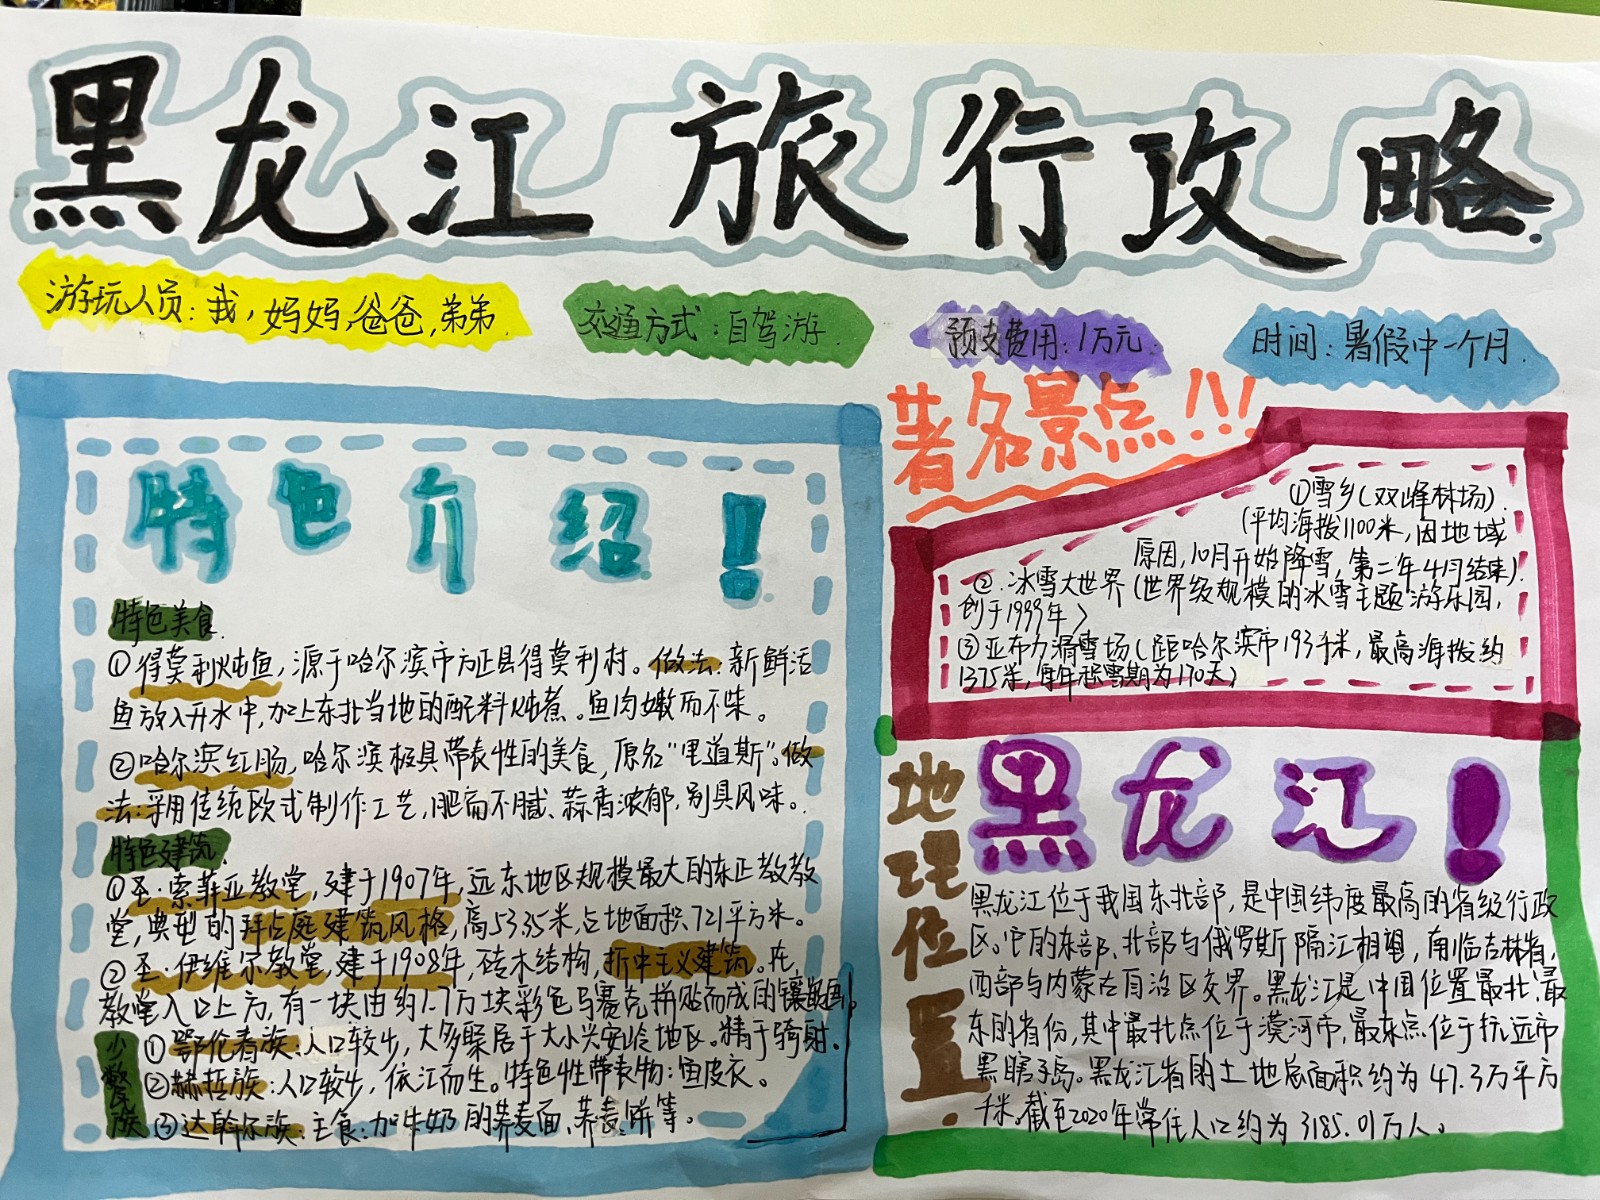 黑龙江旅行攻略
游玩人员：我，妈妈，爸爸，弟弟.
交通方式：自驾游.
预支费用：1万元.
时间：暑假中一个月.
特色介绍！
特色美食
①得莫利炖鱼，源于哈尔滨市方正县得莫利村。做法：新鲜活
鱼放入开水中，加上东北当地的配料炖煮。鱼肉嫩而不柴。
②哈尔滨红肠，哈尔滨极具带表性的美食，原名“里道斯”。做
法：采用传统欧式制作工艺，肥而不腻、蒜香浓郁，别具风味。
特色建筑.
①圣·索菲亚教堂，建于1907年，远东地区规模最大的东正教教
堂，典型的拜占庭建筑风格，高53.35米，占地面积721平方米。
②圣·伊维尔教堂，建于1908年，砖木结构，折中主义建筑。在
教堂入口上方，有一块由约1.7万块彩色马赛克拼贴而成的镶嵌画。
少数民族
①鄂伦春族：人口较少，大多聚居于大小兴安岭地区。精于骑射.
②赫哲族：人口较少，依江而生。特色性带表物：鱼皮衣。
③达斡尔族：主食：加牛奶的荞麦面、荞麦饼等。
著名景点！！！
①雪乡（双峰林场）
（平均海拔1100米，因地域
原因，10月开始降雪，第二年4月结束）.
②.冰雪大世界（世界级规模的冰雪主题游乐园，
创于1999年）
③亚布力滑雪场（距哈尔滨市193千米，最高海拔约
1375米，每年积雪期为170天）
地理位置.
黑龙江！
黑龙江位于我国东北部，是中国纬度最高的省级行政
区。它的东部、北部与俄罗斯隔江相望，南临吉林省，
西部与内蒙古自治区交界。黑龙江是中国位置最北、最
东的省份，其中最北点位于漠河市，最东点位于抚远市
黑瞎子岛。黑龙江省的土地总面积约为47.3万平方
千米。截至2020年常住人口约为3185.01万人。